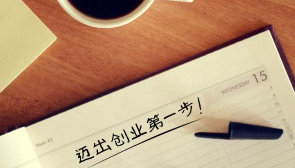 WEDNESDAY 15
Week 42
迈出创业第一步!